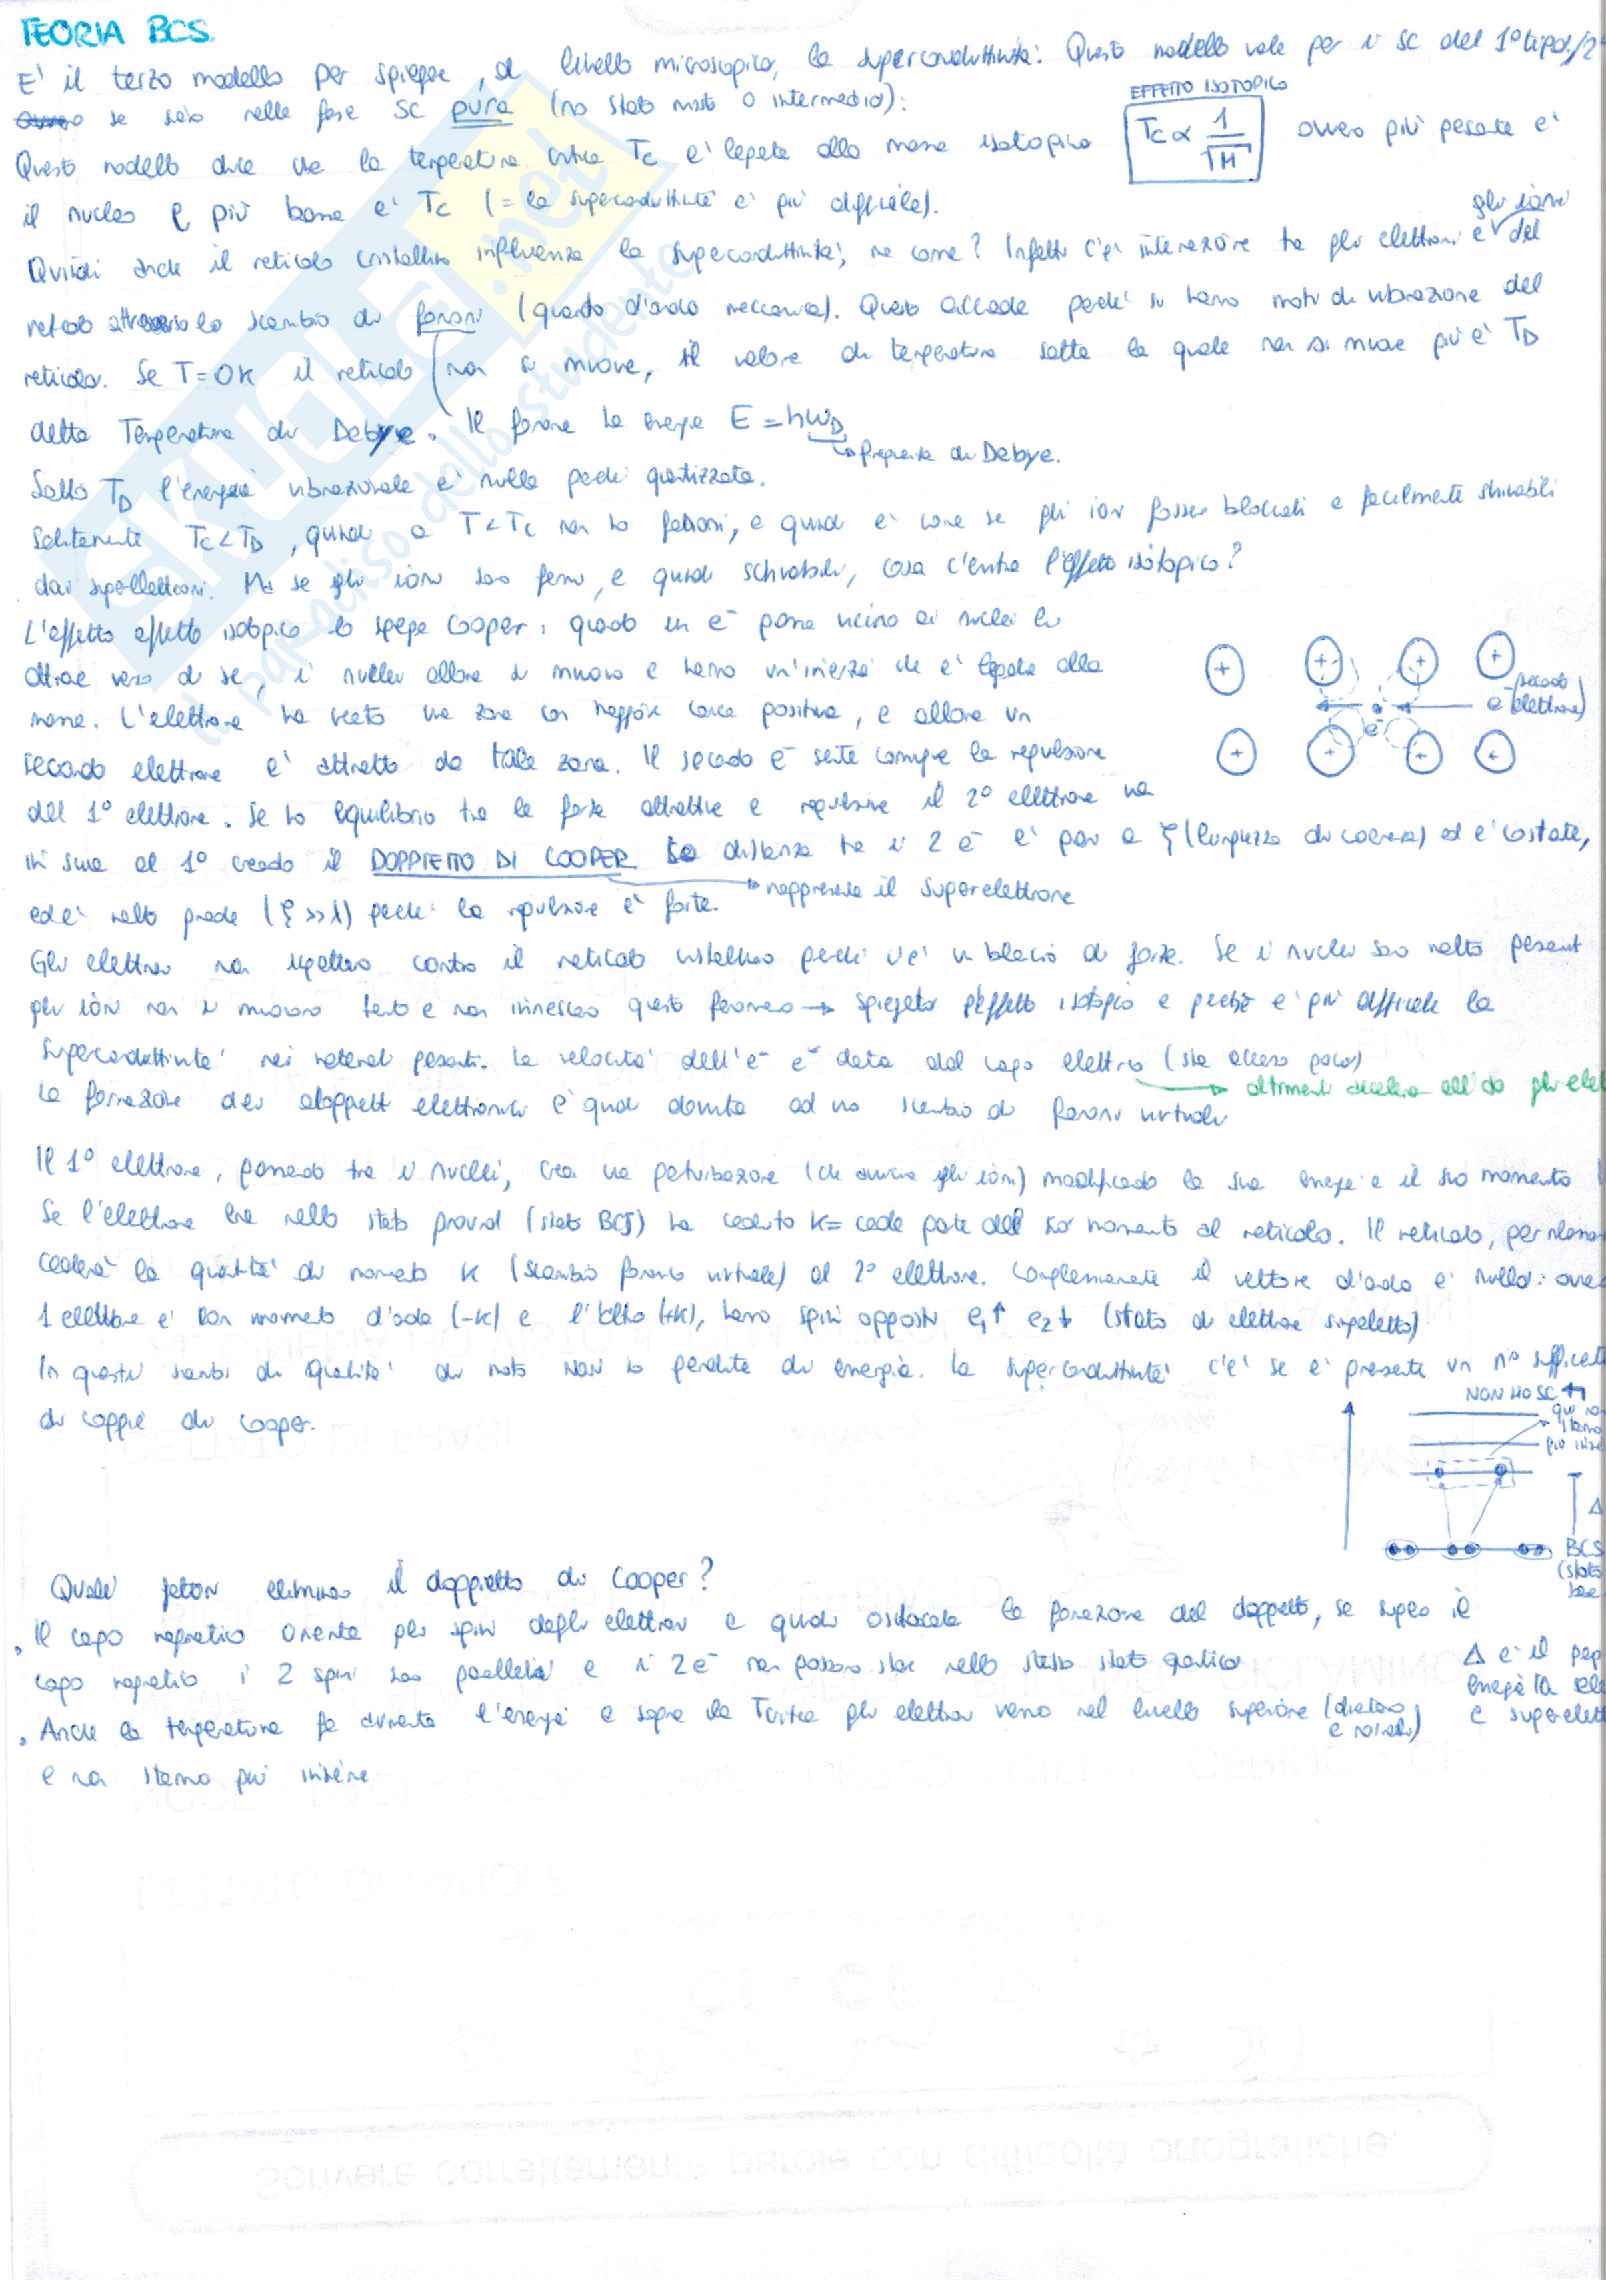 TEORIA BCS
E' il terzo modello per spiegare, a livello microscopico, la superconduttività. Questo modello vale per i SC del 1° tipo/2
se sono nelle fase SC pura (no stato misto o intermedio):
EFFETTO ISOTOPICO
Questo modello dice che la temperatura critica Tc e' legata alla massa isotopica Tc ∝ 1/√M ovvero più pesante e'
il nucleo e più bassa e' Tc (= la superconduttività e' più difficile).
Quindi anche il reticolo cristallino influenza la superconduttività, ma come? Infatti c'è interazione tra gli elettroni e gli ioni del
reticolo attraverso lo scambio di fononi (quanto d'onda meccanica). Questo accade perché si hanno moti di vibrazione del
reticolo. Se T=0K il reticolo non si muove, il valore di temperatura sotto la quale non si muove più e' TD
detta Temperatura di Debye. Il fonone ha energia E = hωD
Frequenza di Debye.
Sotto TD l'energia vibrazionale e' nulla perché quantizzata.
Solitamente Tc<TD, quindi a T<Tc non ho fononi, e quindi e' come se gli ioni fossero bloccati e facilmente schivabili
dai superelettroni. Ma se gli ioni sono fermi, e quindi schivabili, cosa c'entra l'effetto isotopico?
L'effetto effetto isotopico lo spiega Cooper: quando un e- passa vicino ai nuclei li
attrae verso di se, i nuclei allora si muovono e hanno un'inerzia che e' legata alla
massa. L'elettrone ha creato una zona con maggior carica positiva, e allora un
secondo elettrone e' attratto da tale zona. Il secondo e- sente comunque la repulsione
del 1° elettrone. Se ho equilibrio tra le forze attrattive e repulsive il 2° elettrone va
in scia al 1° creando il DOPPIETTO DI COOPER la distanza tra i 2 e- e' pari a ξ (lunghezza di coerenza) ed e' costante,
ed e' molto grande (ξ >> λ) perche' la repulsione e' forte.
rappresenta il superelettrone
+ + + +
e- (secondo elettrone)
e-
+ + + +
Gli elettroni non sbattono contro il reticolo cristallino perché c'e' un bilancio di forze. Se i nuclei sono molto pesanti
gli ioni non si muovono tanto e non innescano questo fenomeno → spiegato l'effetto isotopico e perché e' più difficile la
superconduttività nei materiali pesanti. La velocità dell'e- e' data dal campo elettrico (sta acceso poco)
altrimenti accelera all'∞ gli elet
La formazione dei doppietti elettronici e' quindi dovuta ad uno scambio di fononi virtuali
Il 1° elettrone, passando tra i nuclei, crea una perturbazione (che avvicina gli ioni) modificando la sua energia e il suo momento
Se l'elettrone era nello stato ground (stato BCS) ha ceduto K = cede parte del suo momento al reticolo. Il reticolo, per
cederà la quantità di momento K (scambio fonone virtuale) al 2° elettrone. Complessivamente il vettore d'onda e' nullo: ovve
1 elettrone e' con momento d'onda (-K) e l'altro (+K), hanno spin opposti e1↑ e2↓ (stato di elettrone superelettro)
In questi scambi di quantità di moto non ho perdite di energia. La superconduttività c'e' se e' presente un n° sufficiente
di coppie di Cooper.
NON HO SC
qui no
stanno
più insie
Δ
BCS
(stato
base
Quali fattori eliminano il doppietto di Cooper?
• Il campo magnetico orienta gli spin degli elettroni e quindi ostacola la formazione del doppietto, se supero il
campo magnetico i 2 spin sono paralleli e i 2 e- non possono stare nello stesso stato quantico
• Anche la temperatura fa aumentare l'energia e sopra la Tcritica gli elettroni vanno nel livello superiore
e non stanno più insieme
Δ e' il gap
energia tra
e superelett